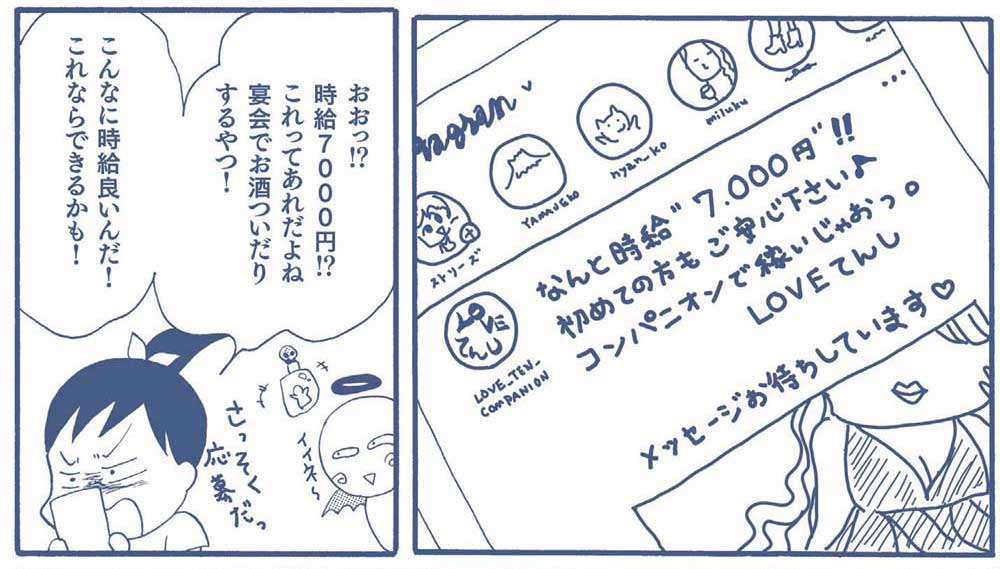 ストリーズ
YAMANEKO
nyan_ko
miluku
LOVEにてんし
LOVE_TEN_
COMPANION
なんと時給"7.000円"!!
初めての方もご安心下さい♪
コンパニオンで稼いじゃおっ。
LOVEてんし
メッセージお待ちしています♡
おおっ!?
時給7000円!?
これってあれだよね
宴会でお酒ついだり
するやつ!
こんなに時給良いんだ!
これならできるかも!
イイネ〜
さっそく
応募だっ